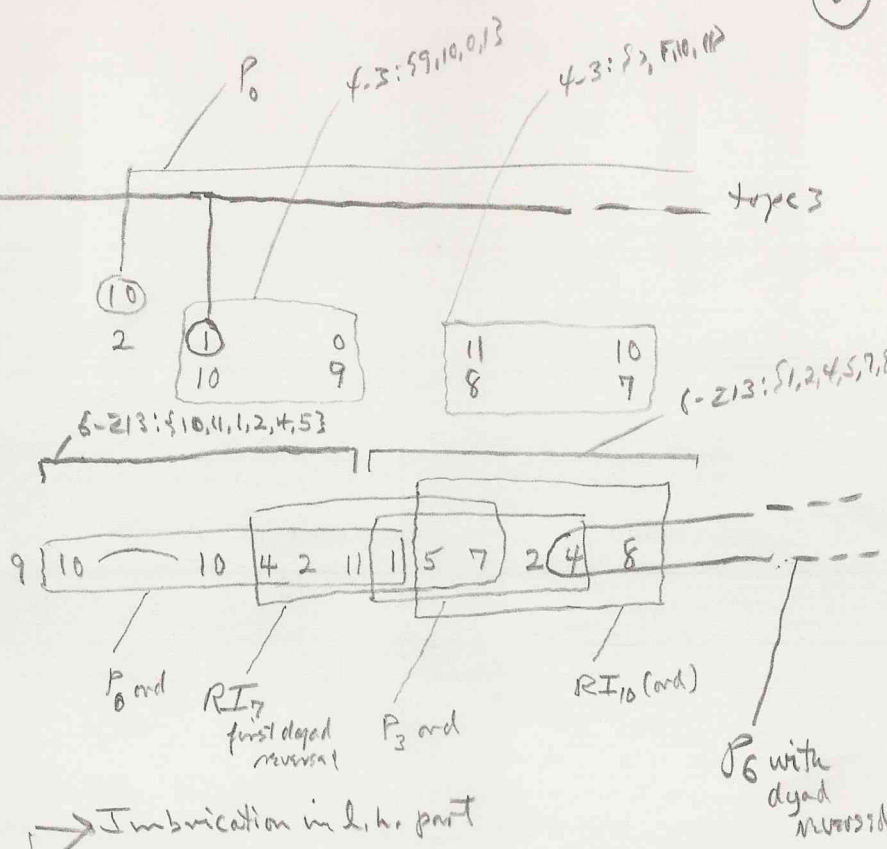 P₀
4-3:{9,10,0,1}
type 3
10
2
1 0
10 9
11 10
8 7
6-Z13:{10,11,1,2,4,5}
6-Z13:{1,2,4,5,7,8
9 10 10 4 2 11 1 5 7 2 4 8
P₀ ord
RI₇
first dyad
reversal
P₃ ord
RI₁₀ (ord)
P₆ with
dyad
reversal
→ Imbrication in l.h. part